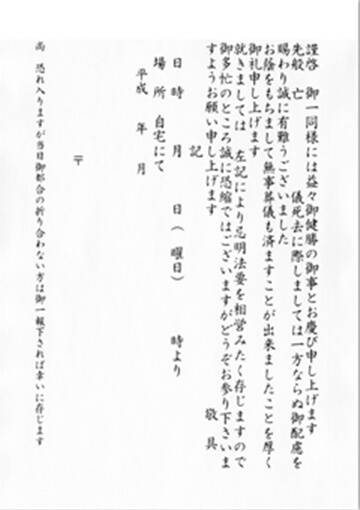 謹啓 御一同様には益々御健勝の御事とお慶び申し上げます
先般 亡 儀死去に際しましては一方ならぬ御配慮を
賜わり誠に有難うございました
お蔭をもちまして無事葬儀も済ますことが出来ましたことを厚く
御礼申し上げます
就きましては 左記により忌明法要を相営みたく存じますので
御多忙のところ誠に恐縮ではございますがどうぞお参り下さいま
すようお願い申し上げます 敬具
記
日時 月 日(曜日) 時より
場所 自宅にて
平成 年 月
〒
尚 恐れ入りますが当日御都合の折り合わない方は御一報下されば幸いに存じます